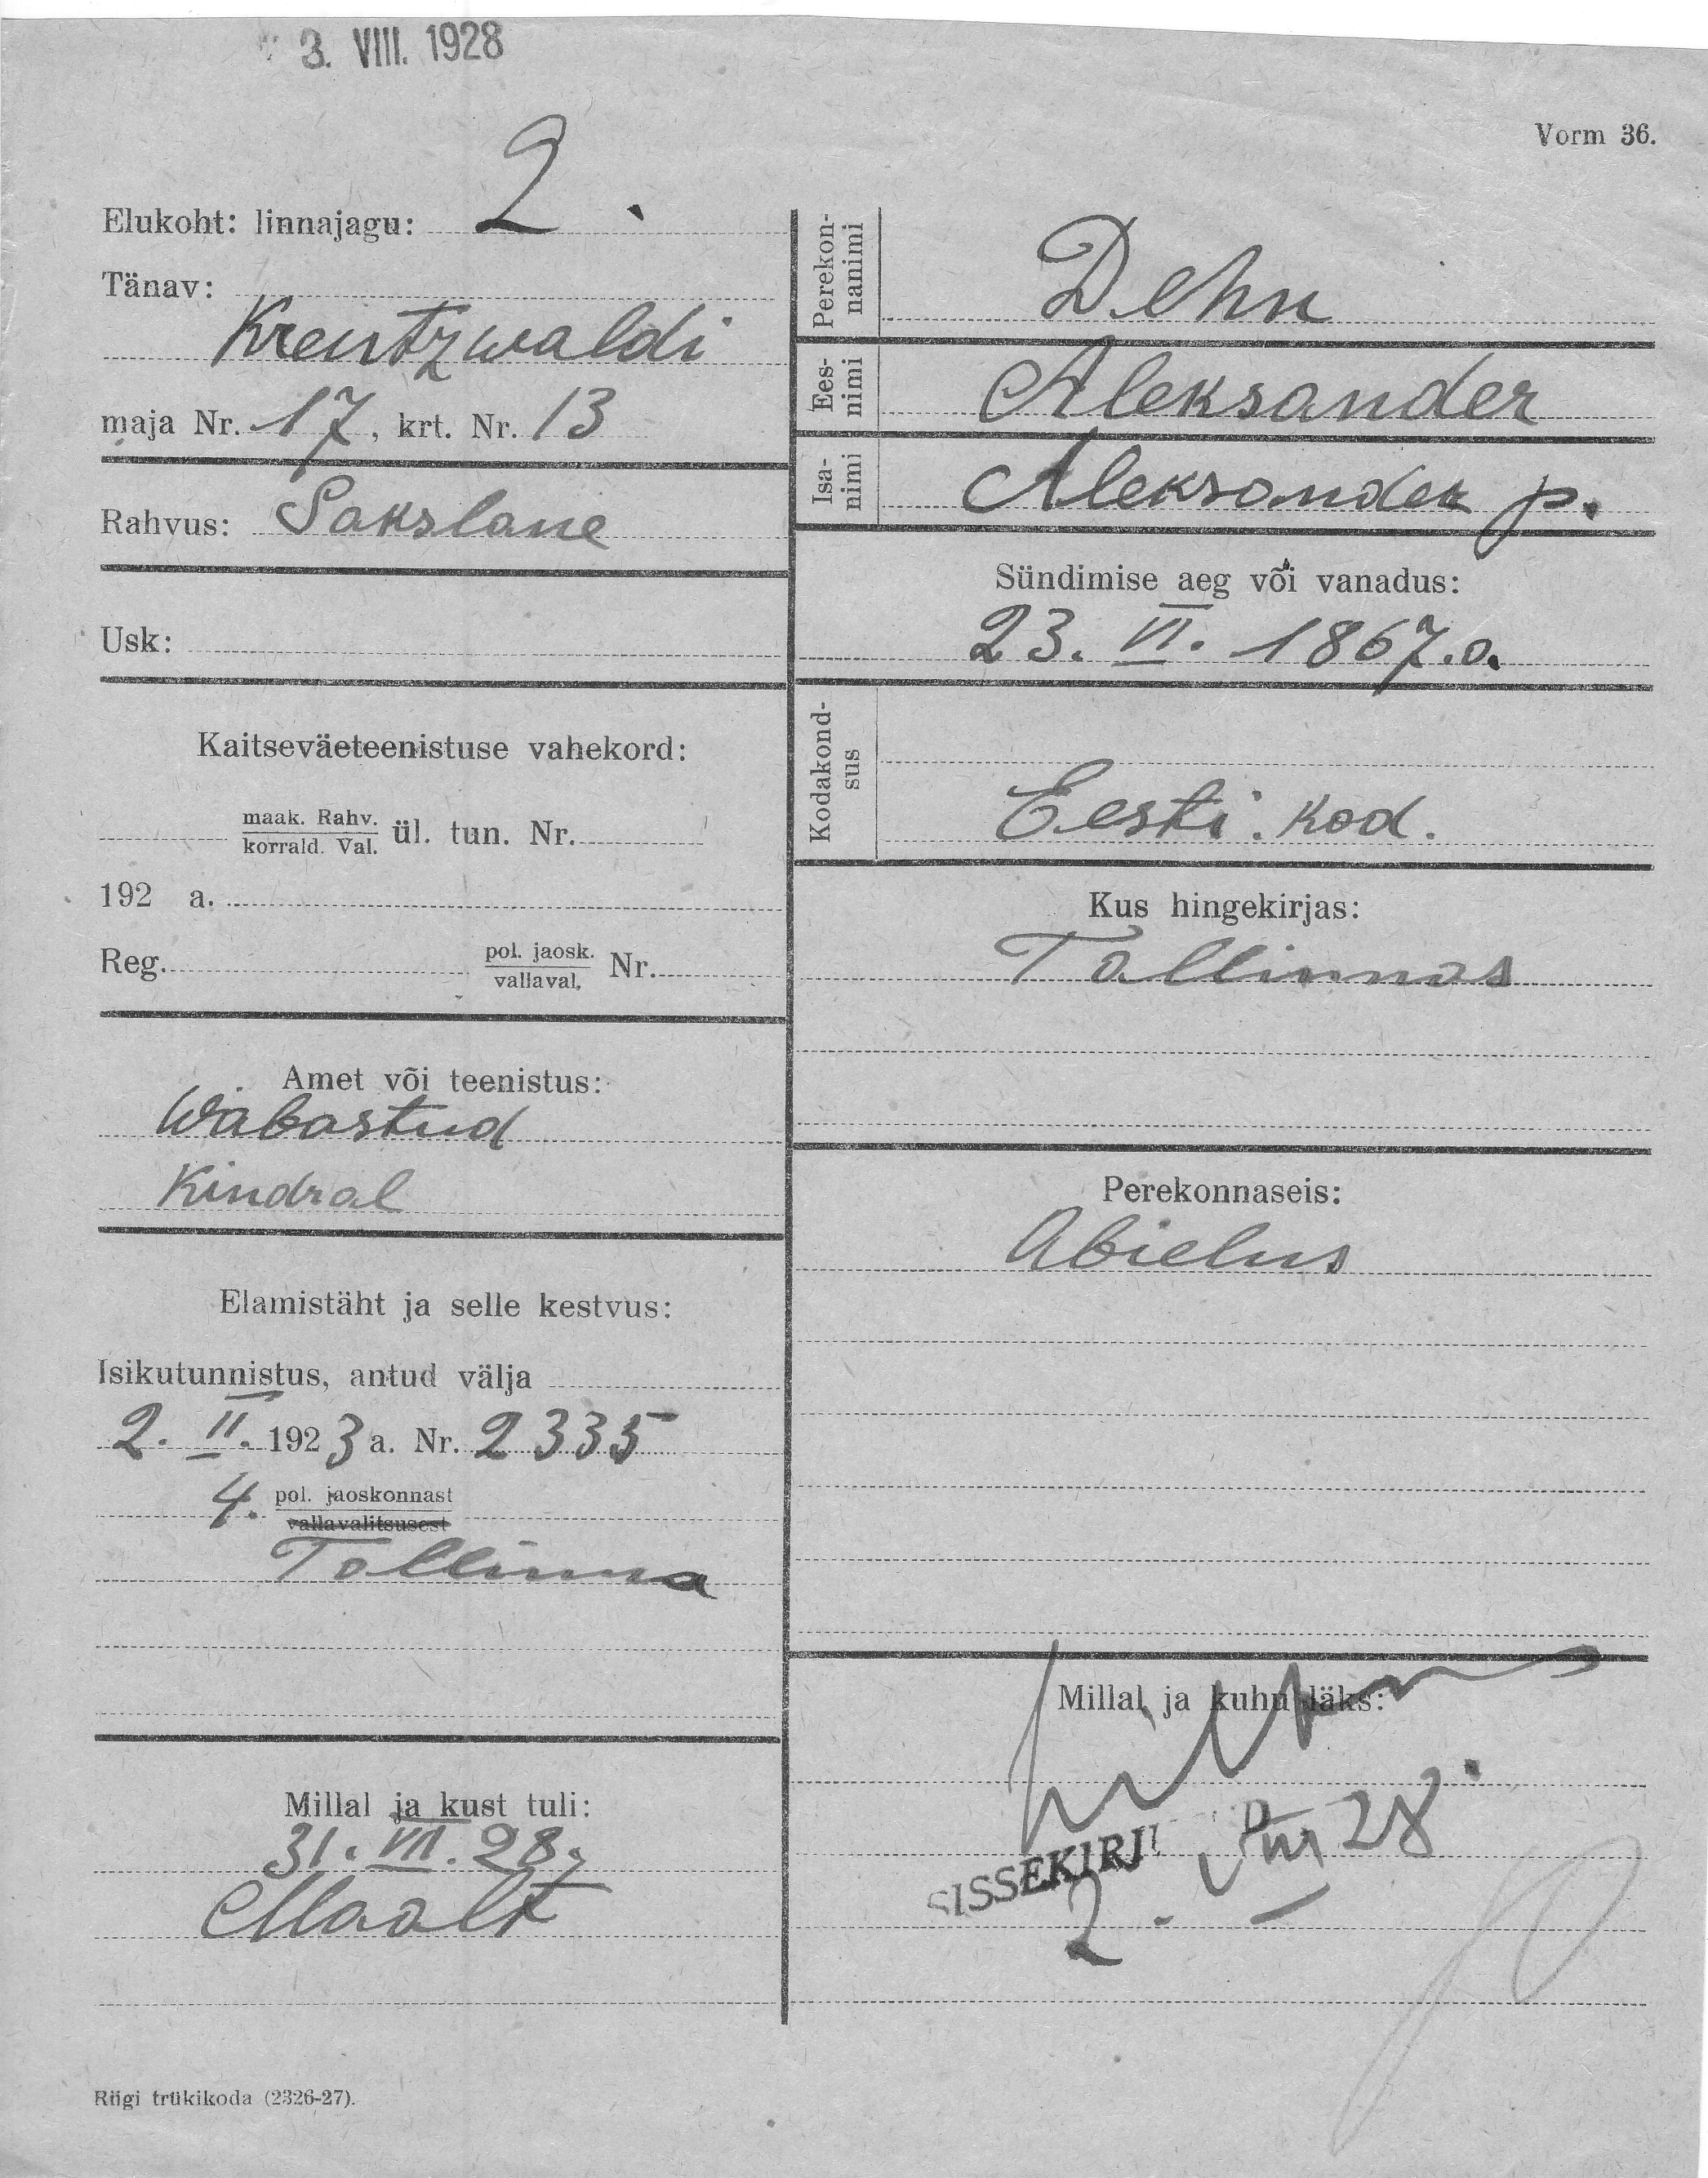 3. VIII. 1928
Vorm 36.
Elukoht: linnajagu: 2.
Tänav:
Kreutzwaldi
maja Nr. 17, krt. Nr. 13
Rahvus: Sakslane
Usk:
Kaitseväeteenistuse vahekord:
maak. Rahv.
korrald. Val. ül. tun. Nr.
192 a.
Reg. pol. jaosk.
vallaval. Nr.
Amet või teenistus:
Wabastud
Kindral
Elamistäht ja selle kestvus:
Isikutunnistus, antud välja
2. II. 1923 a. Nr. 2335
4. pol. jaoskonnast
vallavalitsusest
Tallinna
Millal ja kust tuli:
31. VII. 28.
Maalt
Riigi trükikoda (2326-27).
Perekon-
nanimi
Dehn
Ees-
nimi
Aleksander
Isa-
nimi
Aleksander p.
Sündimise aeg või vanadus:
23. VI. 1867.a.
Kodakond-
sus
Eesti. kod.
Kus hingekirjas:
Tallinnas
Perekonnaseis:
Abielus
Millal ja kuhu läks:
SISSEKIRJU
2. VIII 28.